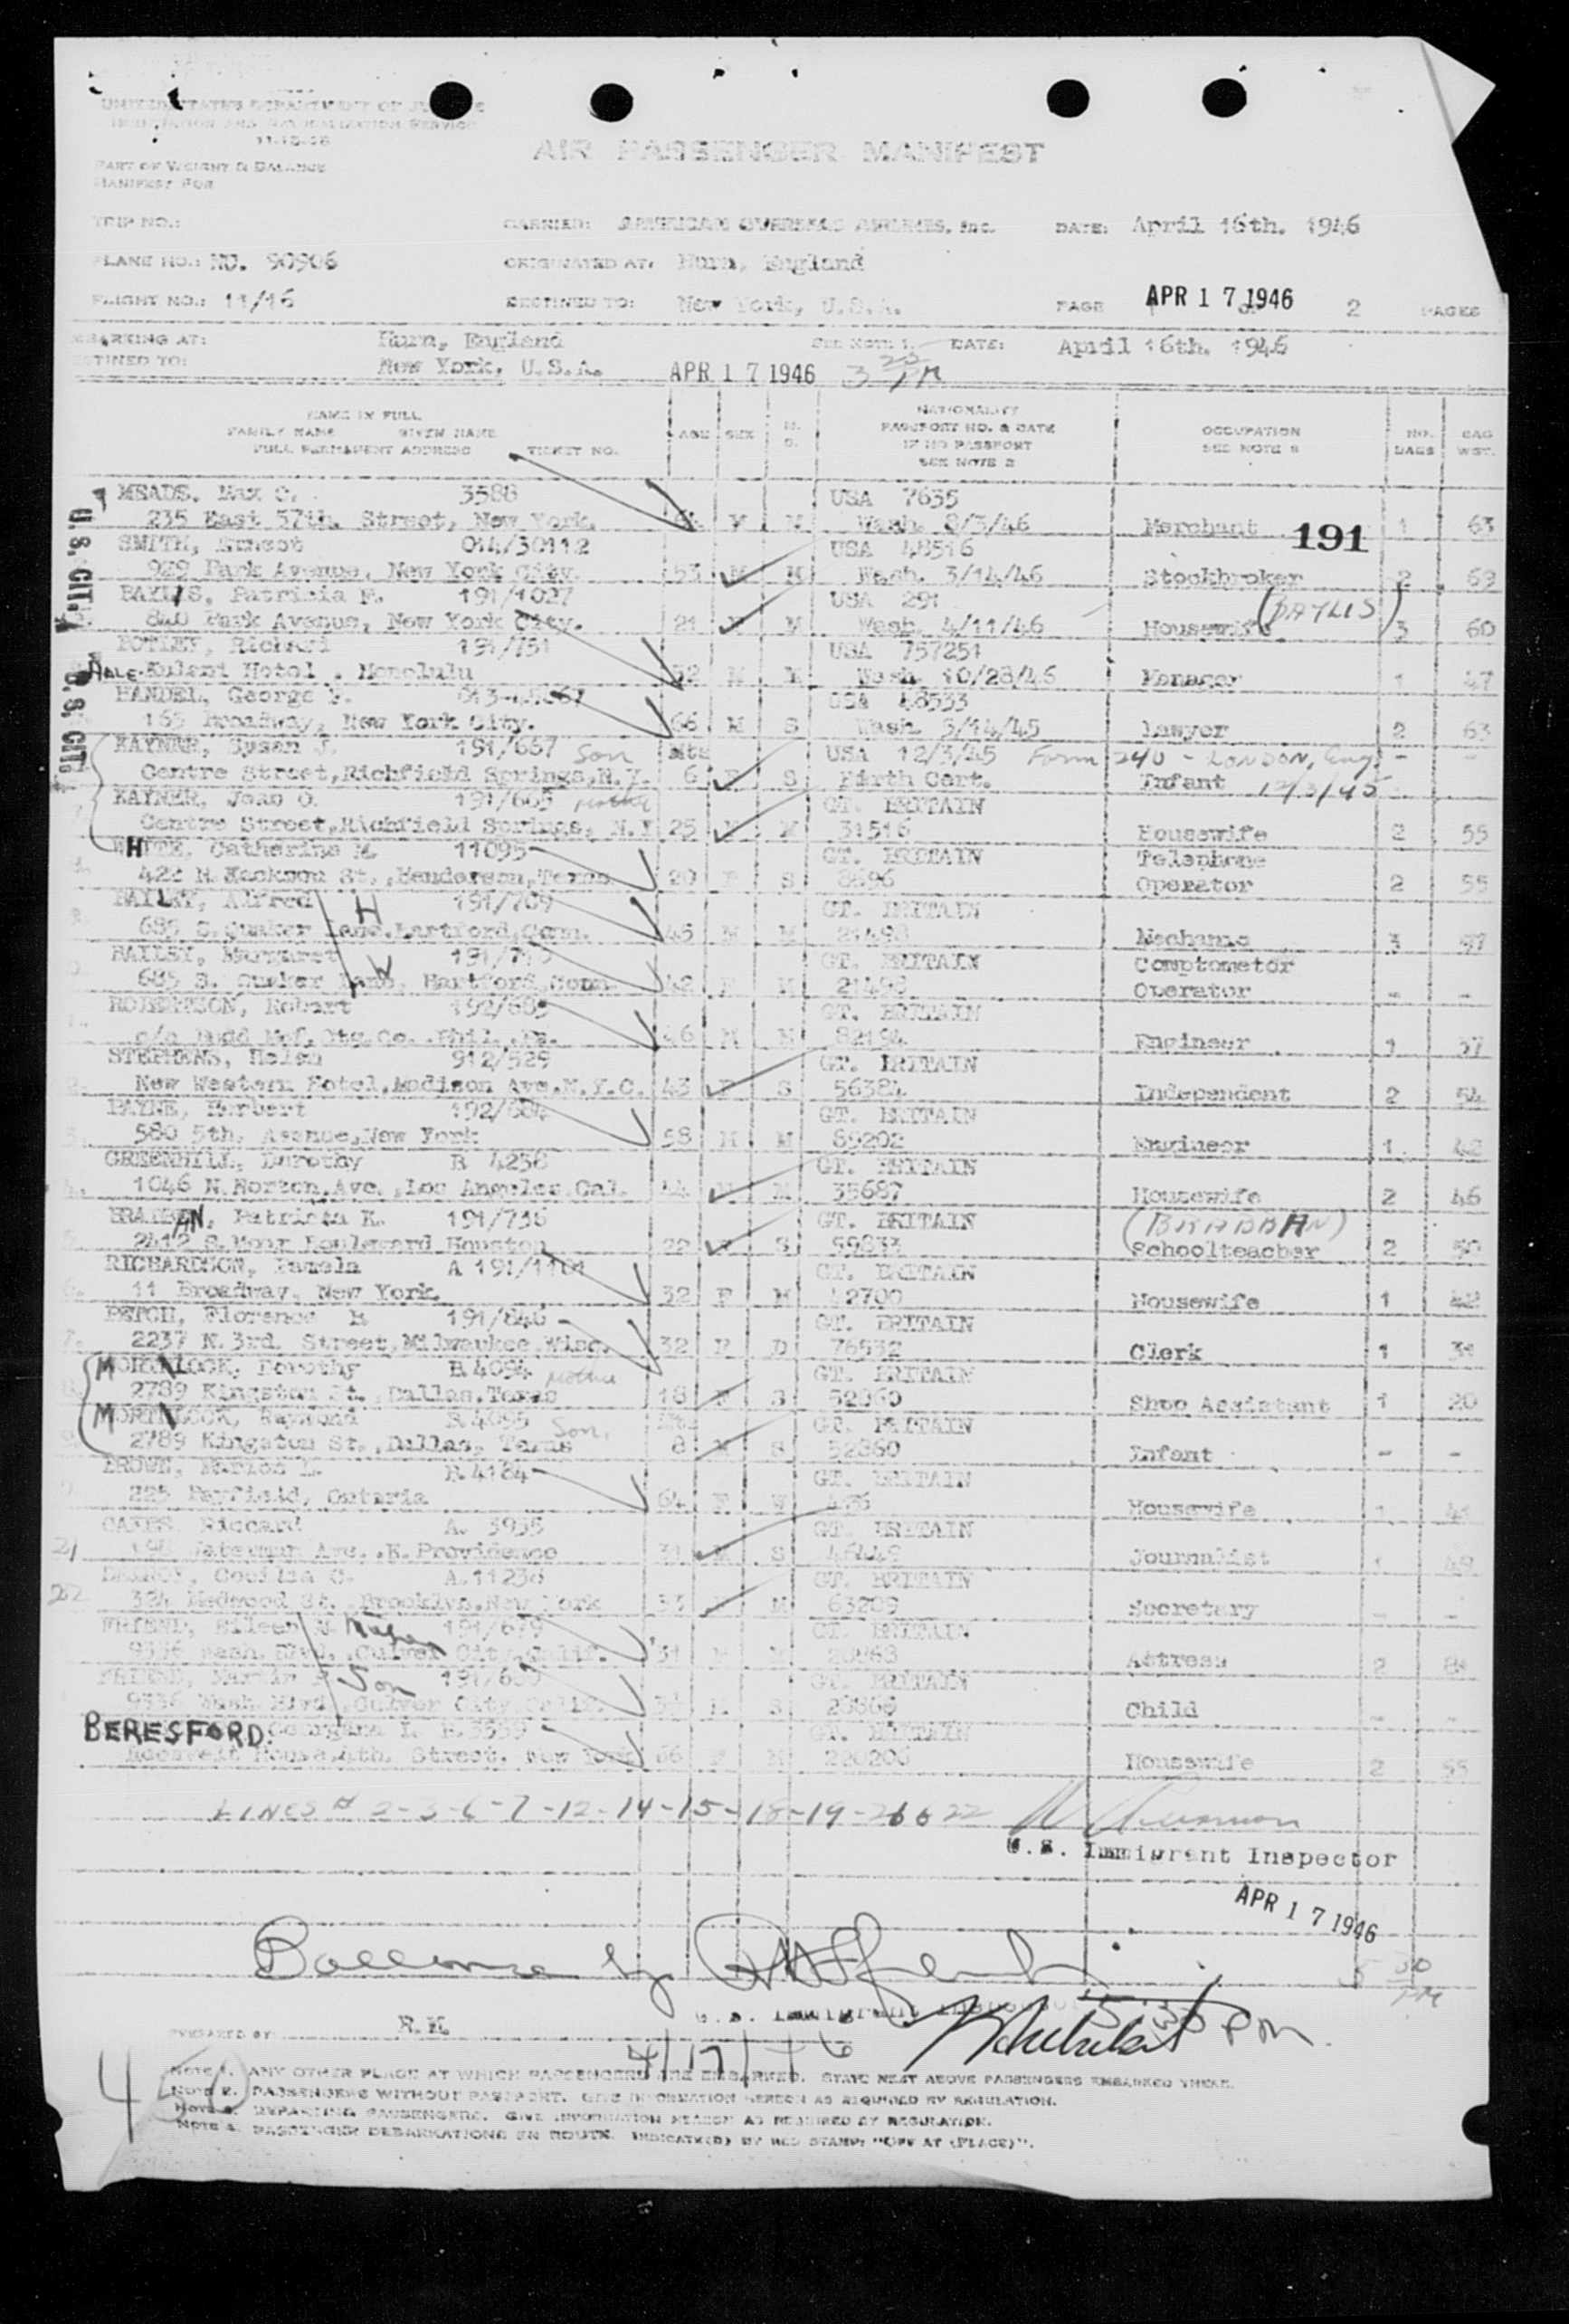 UNITED STATES DEPARTMENT OF JUSTICE
IMMIGRATION AND NATURALIZATION SERVICE
PART OF WEIGHT & BALANCE
MANIFEST FOR
AIR PASSENGER MANIFEST
TRIP NO.: CARRIER: AMERICAN OVERSEAS AIRLINES, Inc. DATE: April 16th. 1946
PLANE NO.: NC. 90906 ORIGINATED AT: Hurn, England
FLIGHT NO.: 11/16 DESTINED TO: New York, U.S.A. PAGE APR 17 1946 2 PAGES
EMBARKING AT: Hurn, England SEE NOTE 1. DATE: April 16th. 1946
DESTINED TO: New York, U.S.A. APR 17 1946 3 PM
NAME IN FULL
FAMILY NAME GIVEN NAME
FULL PERMANENT ADDRESS TICKET NO. AGE SEX
NATIONALITY
PASSPORT NO. & DATE
IF NO PASSPORT
SEE NOTE 2
OCCUPATION
NO. BAGS BAG WGT.
U.S. CIT.
U.S. CIT.
MEADS, Max C. 3588 USA 7635
235 East 57th. Street, New York. M M Wash. 8/3/46 Merchant 191 1 63
SMITH, Ernest 044/30112 USA 48516
929 Park Avenue, New York City. 53 M M Wash. 3/14/46 Stockbroker 2 69
BAYLIS, Patricia F. 191/1027 USA 291
840 Park Avenue, New York City. 21 M Wash. 4/11/46 Housewife (BAYLIS) 3 60
Richard 191/751 USA 757251
HALE-Kulani Hotel, Honolulu 52 M M Wash. 10/28/46 Manager 1 47
HANDEL, George F. USA 48533
165 Broadway, New York City. 66 M S Wash. 3/14/45 Lawyer 2 63
RAYNER, Sysan J. 191/667 Son Mts USA 12/3/45 Form 240 - LONDON, Eng.
Centre Street, Richfield Springs, N.Y. 6 F S Birth Cert. Infant 12/3/45 - -
RAYNER, Joan O. 191/665 Mother GT. BRITAIN
Centre Street, Richfield Springs, N.Y. 25 M 31516 Housewife 2 55
WHITE, Catherine M. 11095 GT. BRITAIN Telephone
St., Henderson, Texas 20 F S 8696 Operator 2 55
BAILEY, Alfred H 191/709 GT. BRITAIN
685 S. Quaker Lane, Hartford, Conn. 45 M M 21498 Mechanic 3 97
BAILEY, Margaret W GT. BRITAIN Comptometer
685 S. Quaker Lane, Hartford, Conn 42 F M 21498 Operator - -
ROBERTSON, Robert 192/685 GT. BRITAIN
c/o Budd Mnf. Co. Phil., Pa. 46 M M 82194 Engineer 1 37
STEPHENS, Helen 912/529 GT. BRITAIN
New Western Hotel, Madison Ave. N.Y.C. 43 F S 56384 Independent 2 54
PAYNE, Herbert 192/684 GT. BRITAIN
580 5th. Avenue, New York 58 M M 89202 Engineer 1 42
GREENHILL, Dorothy B 4238 GT. BRITAIN
1046 N. Horton, Ave., Los Angeles, Cal. 44 M 35687 Housewife 2 46
BRABBAN, Patricia K. 191/736 GT. BRITAIN (BRABBAN)
2412 S. Moor Boulevard Houston 22 F S 59833 Schoolteacher 2 50
RICHARDSON, Pamela A 191/1101 GT. BRITAIN
11 Broadway, New York. 32 F M 42700 Housewife 1 42
PETCH, Florence B 191/846 GT. BRITAIN
2237 N. 3rd. Street, Milwaukee, Wisc. 32 F D 76532 Clerk 1 31
MORTLOCK, Dorothy B.4094 Mother GT. BRITAIN
2789 Kingston St., Dallas, Texas 18 F S 52860 Shop Assistant 1 20
MORTLOCK, Raymond B.4095 Son. GT. BRITAIN
2789 Kingston St., Dallas, Texas 8 M S 52860 Infant - -
BROWN, Marion L. B.4184 GT. BRITAIN
225 Bayfield, Ontario 64 F W 476 Housewife 1 41
OAKES, Riccard A. 3935 GT. BRITAIN
21 Waterman Ave., E. Providence 31 M S 46449 Journalist 1 49
Cecilia C. A.11236 GT. BRITAIN
22 324 Medwood St. Brooklyn, New York 33 M 63209 Secretary - -
FRIEND, Eileen M. Mother 191/679 GT. BRITAIN
9336 Wash. Blvd., Culver City, Calif. 31 F M 20868 Actress 2 84
FRIEND, Martin Son GT. BRITAIN
9336 Wash. Blvd., Culver City, Calif. M. S 20868 Child - -
BERESFORD. Georgina I. B.3339 GT. BRITAIN
Roosevelt House, 4th. Street, New York 66 F M 220206 Housewife 2 55
LINES # 2-3-6-7-12-14-15-18-19-21 & 22
U.S. Immigrant Inspector
APR 17 1946
Balance by
5 30 PM
U.S. Immigrant Inspector 5:30 PM.
PREPARED BY R.K
4/17/46
450
NOTE 1. ANY OTHER PLACE AT WHICH PASSENGERS ARE EMBARKED. STATE NEXT ABOVE PASSENGERS EMBARKED THERE.
NOTE 2. PASSENGERS WITHOUT PASSPORT. GIVE INFORMATION HEREON AS REQUIRED BY REGULATION.
NOTE 3. DEPARTING PASSENGERS. GIVE INFORMATION HEREON AS REQUIRED BY REGULATION.
NOTE 4. PASSENGER DEBARKATIONS EN ROUTE. INDICATE(D) BY RED STAMP: "OFF AT (PLACE)".